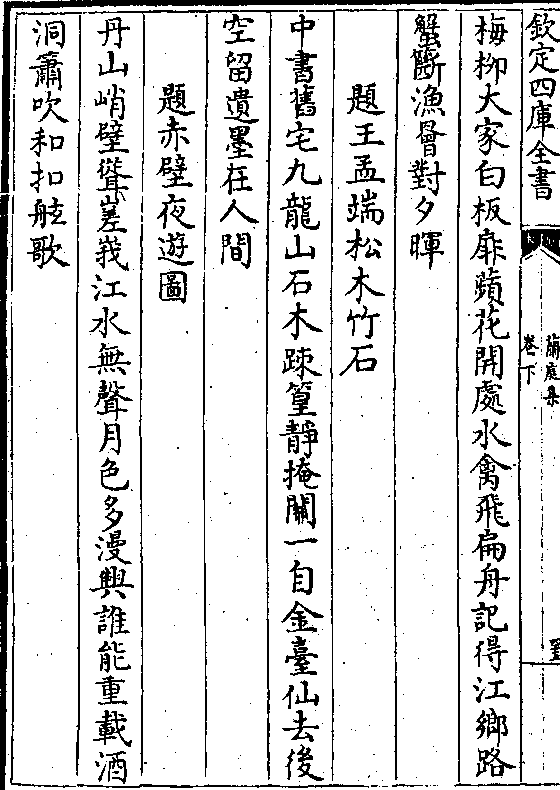 欽定四庫全書
蘭庭集
卷下
梅柳大家白板扉蘋花開處水禽飛扁舟記得江鄉路
蟹斷漁罾對夕暉
題王孟端松木竹石
中書舊宅九龍山石木踈篁靜掩關一自金臺仙去後
空留遺墨在人間
題赤壁夜遊圖
丹山峭壁聳嵳峩江水無聲月色多漫興誰能重載酒
洞簫吹和扣舷歌